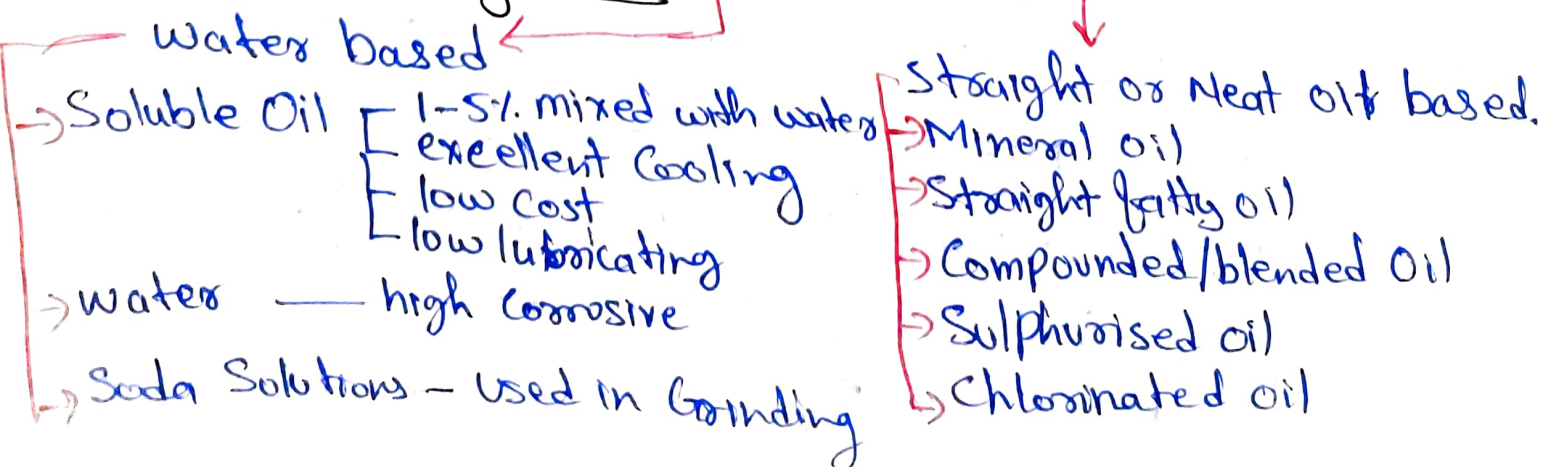 Water based
→ Soluble Oil
1-5% mixed with water
excellent Cooling
low cost
low lubricating
→ water — high Corrosive
→ Soda Solutions - Used in Grinding
Straight or Neat oil based.
→ Mineral oil
→ Straight fatty oil
→ Compounded/blended Oil
→ Sulphurised oil
→ Chlorinated oil